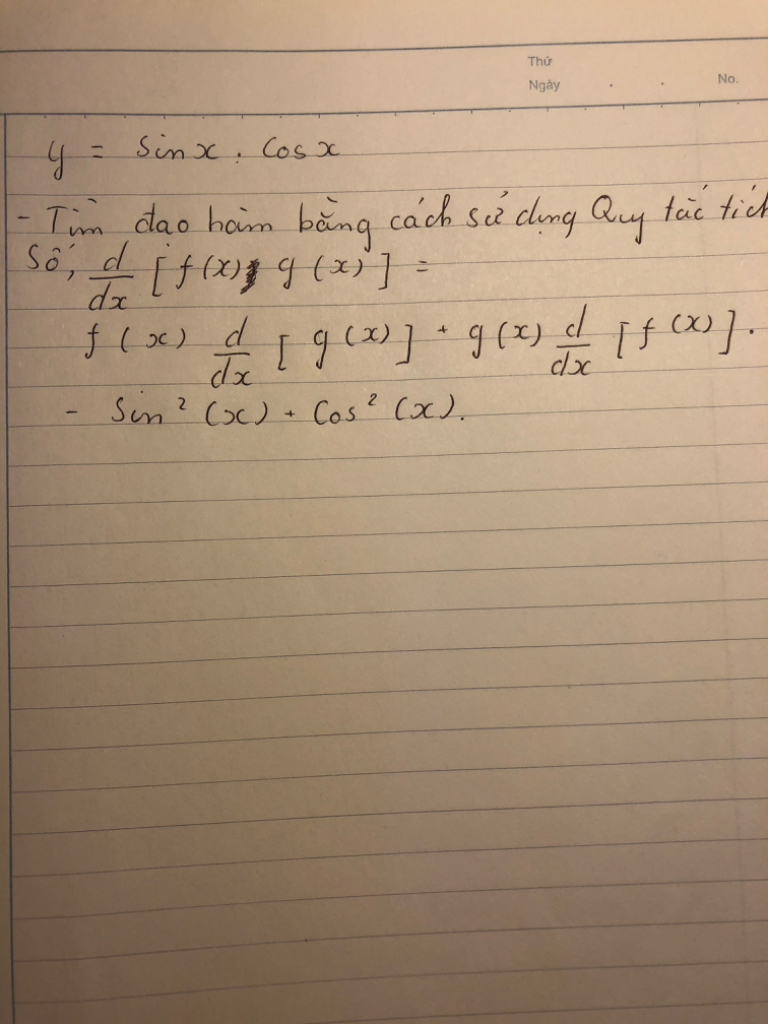 Thứ
Ngày . . No.
y = Sin x . Cos x
- Tìm đạo hàm bằng cách sử dụng Quy tắc tích
Số, d/dx [f(x) g(x)] =
f(x) d/dx [g(x)] + g(x) d/dx [f(x)].
- Sin² (x) + Cos² (x).